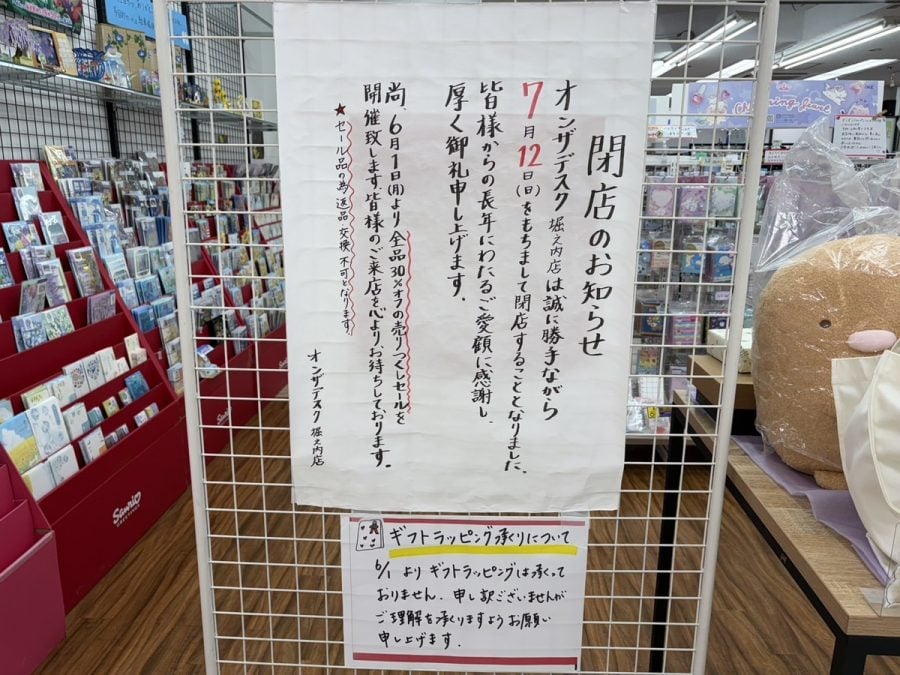 閉店のお知らせ
オンザデスク 堀之内店は誠に勝手ながら
7月12日(日)をもちまして閉店することとなりました。
皆様からの長年にわたるご愛顧に感謝し、
厚く御礼申し上げます。
尚、6月1日(月)より全品30%オフの売りつくしセールを
開催致します。皆様のご来店を心よりお待ちしております。
★セール品の為 返品 交換 不可となります
オンザデスク 堀之内店
ギフトラッピング承りについて
6/1 より ギフトラッピングは承って
おりません。申し訳ございませんが
ご理解を承りますようお願い
申し上げます。
Sanrio
GREETINGS